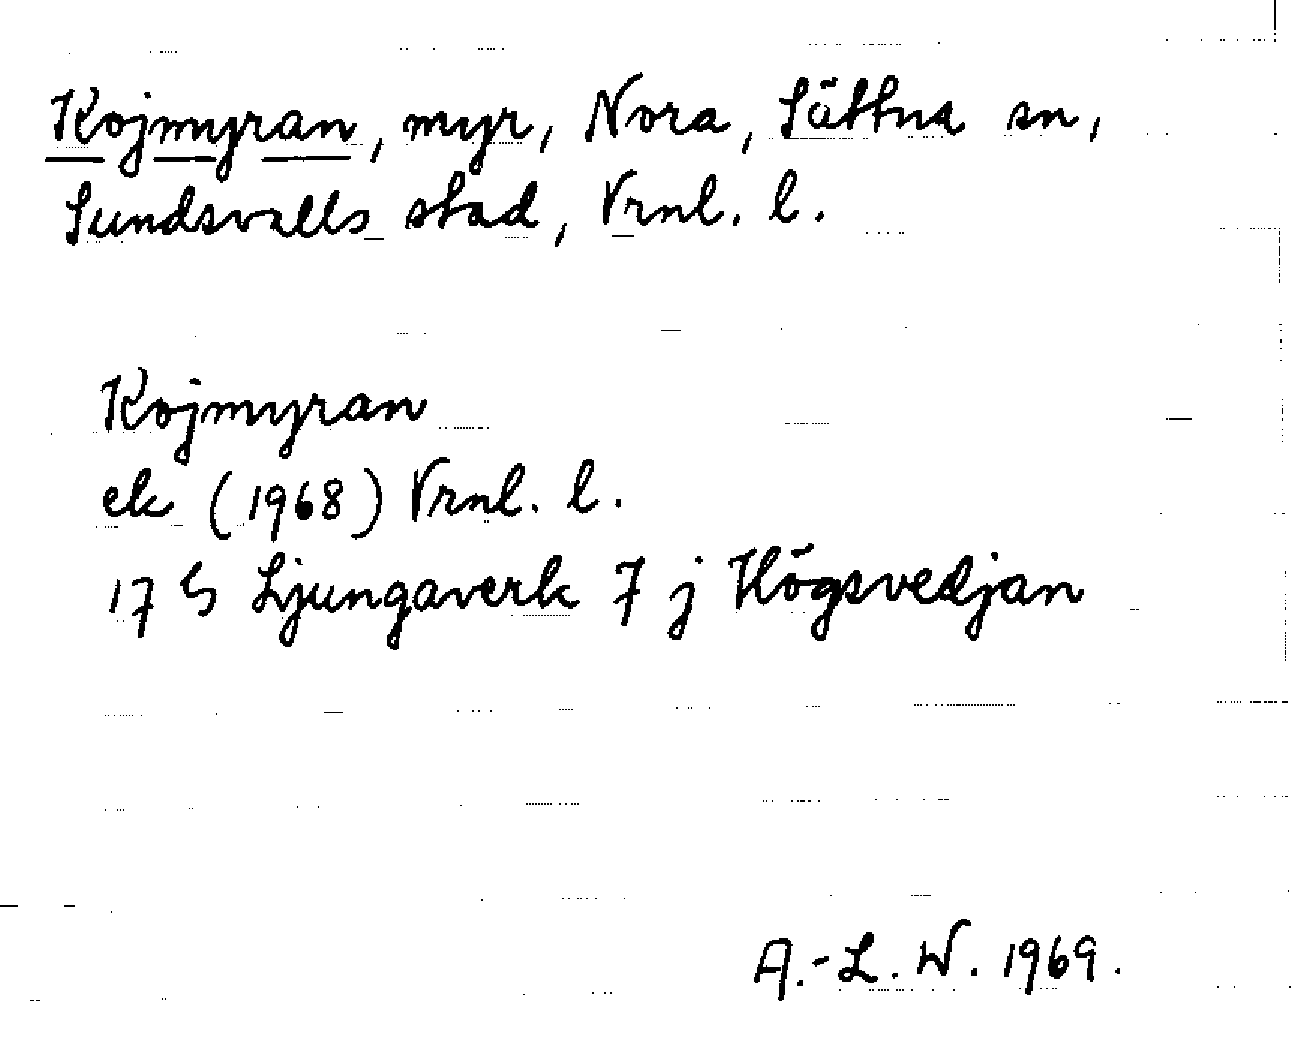 Kojmyran, myr, Nora, Sättna sn,
Sundsvalls stad, Vrnl. l.
Kojmyran
ek (1968) Vrnl. l.
17 G Ljungaverk 7 j Högsvedjan
A.-L. W. 1969.